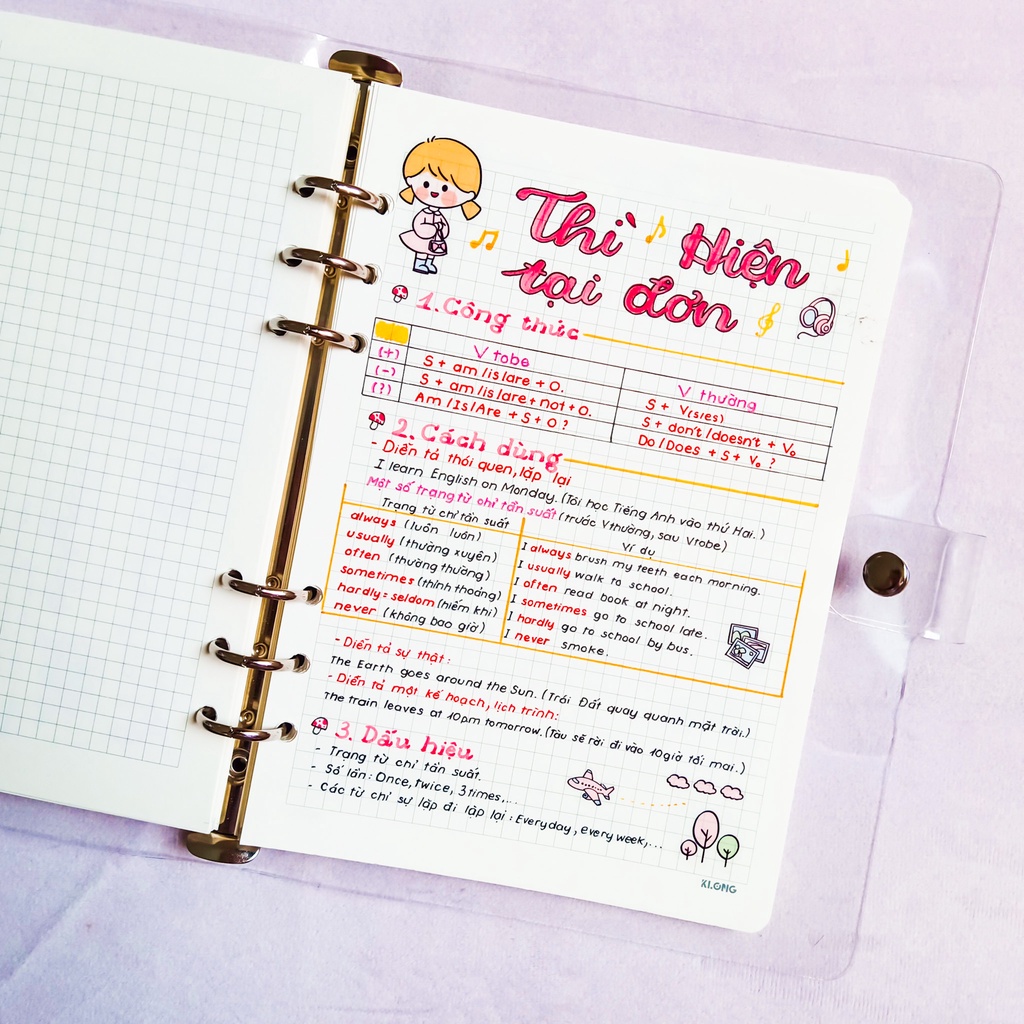 Thì Hiện
tại đơn
1. Công thức
V tobe
V thường
(+)
S + am/is/are + O.
S + V(s/es)
(-)
S + am/is/are + not + O.
S + don't/doesn't + V₀
(?)
Am/Is/Are + S + O ?
Do/Does + S + V₀ ?
2. Cách dùng
- Diễn tả thói quen, lặp lại
I learn English on Monday. (Tôi học Tiếng Anh vào thứ Hai.)
Một số trạng từ chỉ tần suất (trước Vthường, sau Vtobe)
Trạng từ chỉ tần suất
Ví dụ
always (luôn luôn)
I always brush my teeth each morning.
usually (thường xuyên)
I usually walk to school.
often (thường thường)
I often read book at night.
sometimes (thỉnh thoảng)
I sometimes go to school late.
hardly = seldom (hiếm khi)
I hardly go to school by bus.
never (không bao giờ)
I never smoke.
- Diễn tả sự thật:
The Earth goes around the Sun. (Trái Đất quay quanh mặt trời.)
- Diễn tả một kế hoạch, lịch trình:
The train leaves at 10pm tomorrow. (Tàu sẽ rời đi vào 10giờ tối mai.)
3. Dấu hiệu
- Trạng từ chỉ tần suất.
- Số lần: Once, twice, 3times,...
- Các từ chỉ sự lặp đi lặp lại : Everyday, every week,...
KLONG